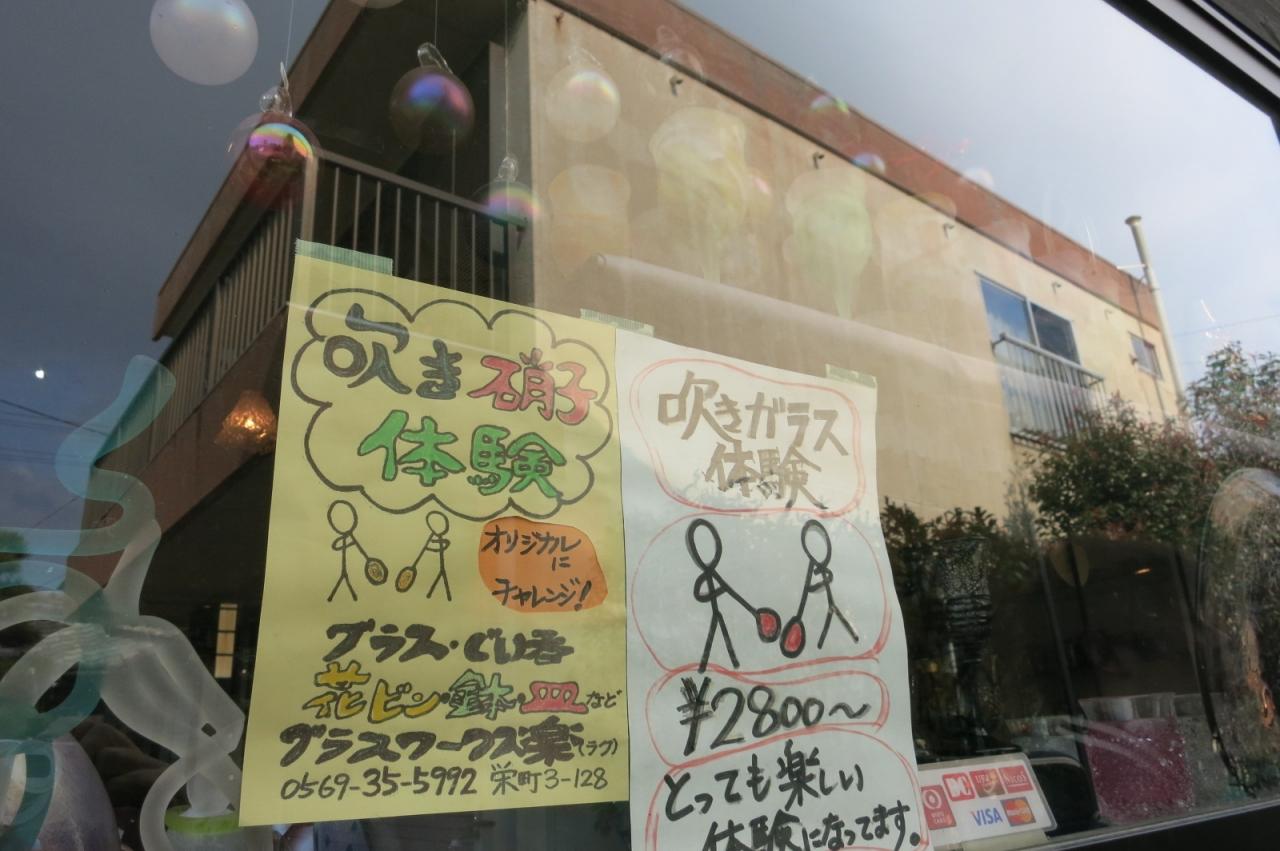 吹き硝子
体験
オリジナルに
チャレンジ!
グラス・ぐい呑
花ビン・鉢・皿など
グラスワークス楽(ラク)
0569-35-5992 栄町3-128
吹きガラス
体験
¥2800~
とっても楽しい
体験になってます。
DC UFJ NICOS
VISA MasterCard